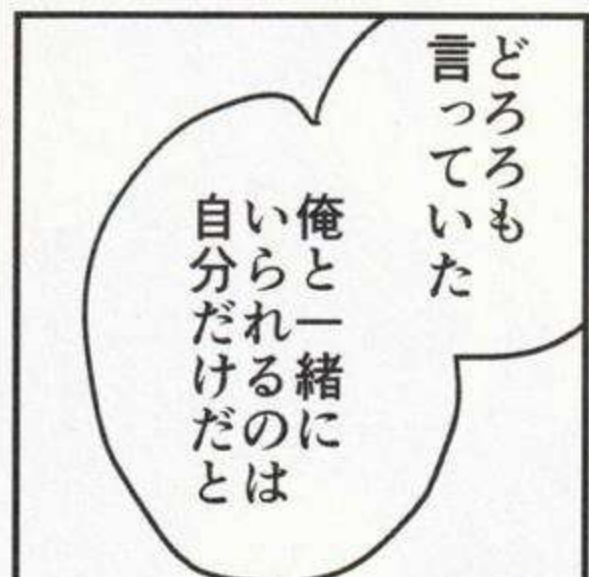 どろろも
言っていた
俺と一緒に
いられるのは
自分だけだと